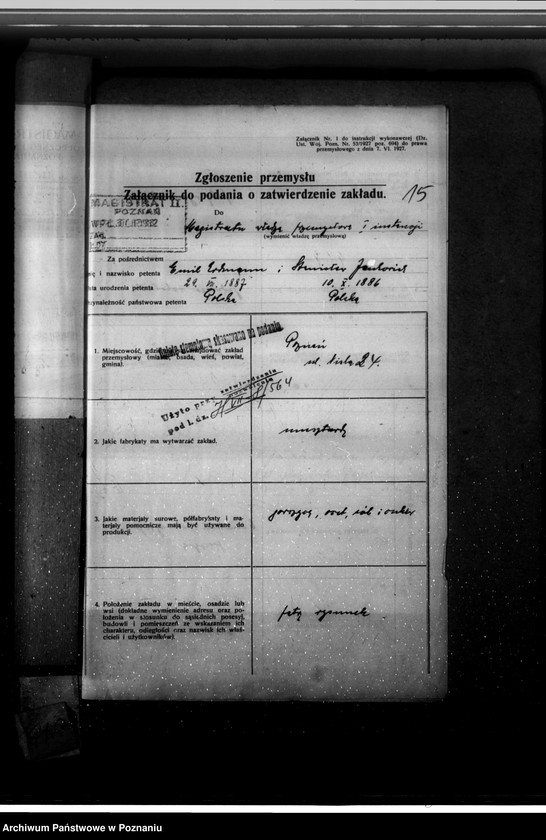 Załącznik Nr. 1 do instrukcji wykonawczej (Dz.
Ust. Woj. Pozn. Nr. 53/1927 poz. 604) do prawa
przemysłowego z dnia 7. VI. 1927.
Zgłoszenie przemysłu
Załącznik do podania o zatwierdzenie zakładu.
15
MAGISTRAT
POZNAŃ
Do
Magistratu
(wymienić władzę przemysłową)
Za pośrednictwem
i nazwisko petenta Emil Erdmann i Stanisław
urodzenia petenta 29. VII. 1887 10. X. 1886
państwowa petenta Polska Polska
1. Miejscowość, zakład
przemysłowy (miasto, osada, wieś, powiat,
gmina).
Poznań
ul. 24.
skasowano na podaniu.
Użyto przy zatwierdzenia
pod l. dz.
2. Jakie fabrykaty ma wytwarzać zakład.
musztardę
3. Jakie materjały surowe, półfabrykaty i ma-
terjały pomocnicze mają być używane do
produkcji.
ocet, sól i cukier
4. Położenie zakładu w mieście, osadzie lub
wsi (dokładne wymienienie adresu oraz po-
łożenia w stosunku do sąsiednich posesyj,
budowli i pomieszczeń ze wskazaniem ich
charakteru, odległości oraz nazwisk ich właś-
cicieli i użytkowników)
rysunek
Archiwum Państwowe w Poznaniu